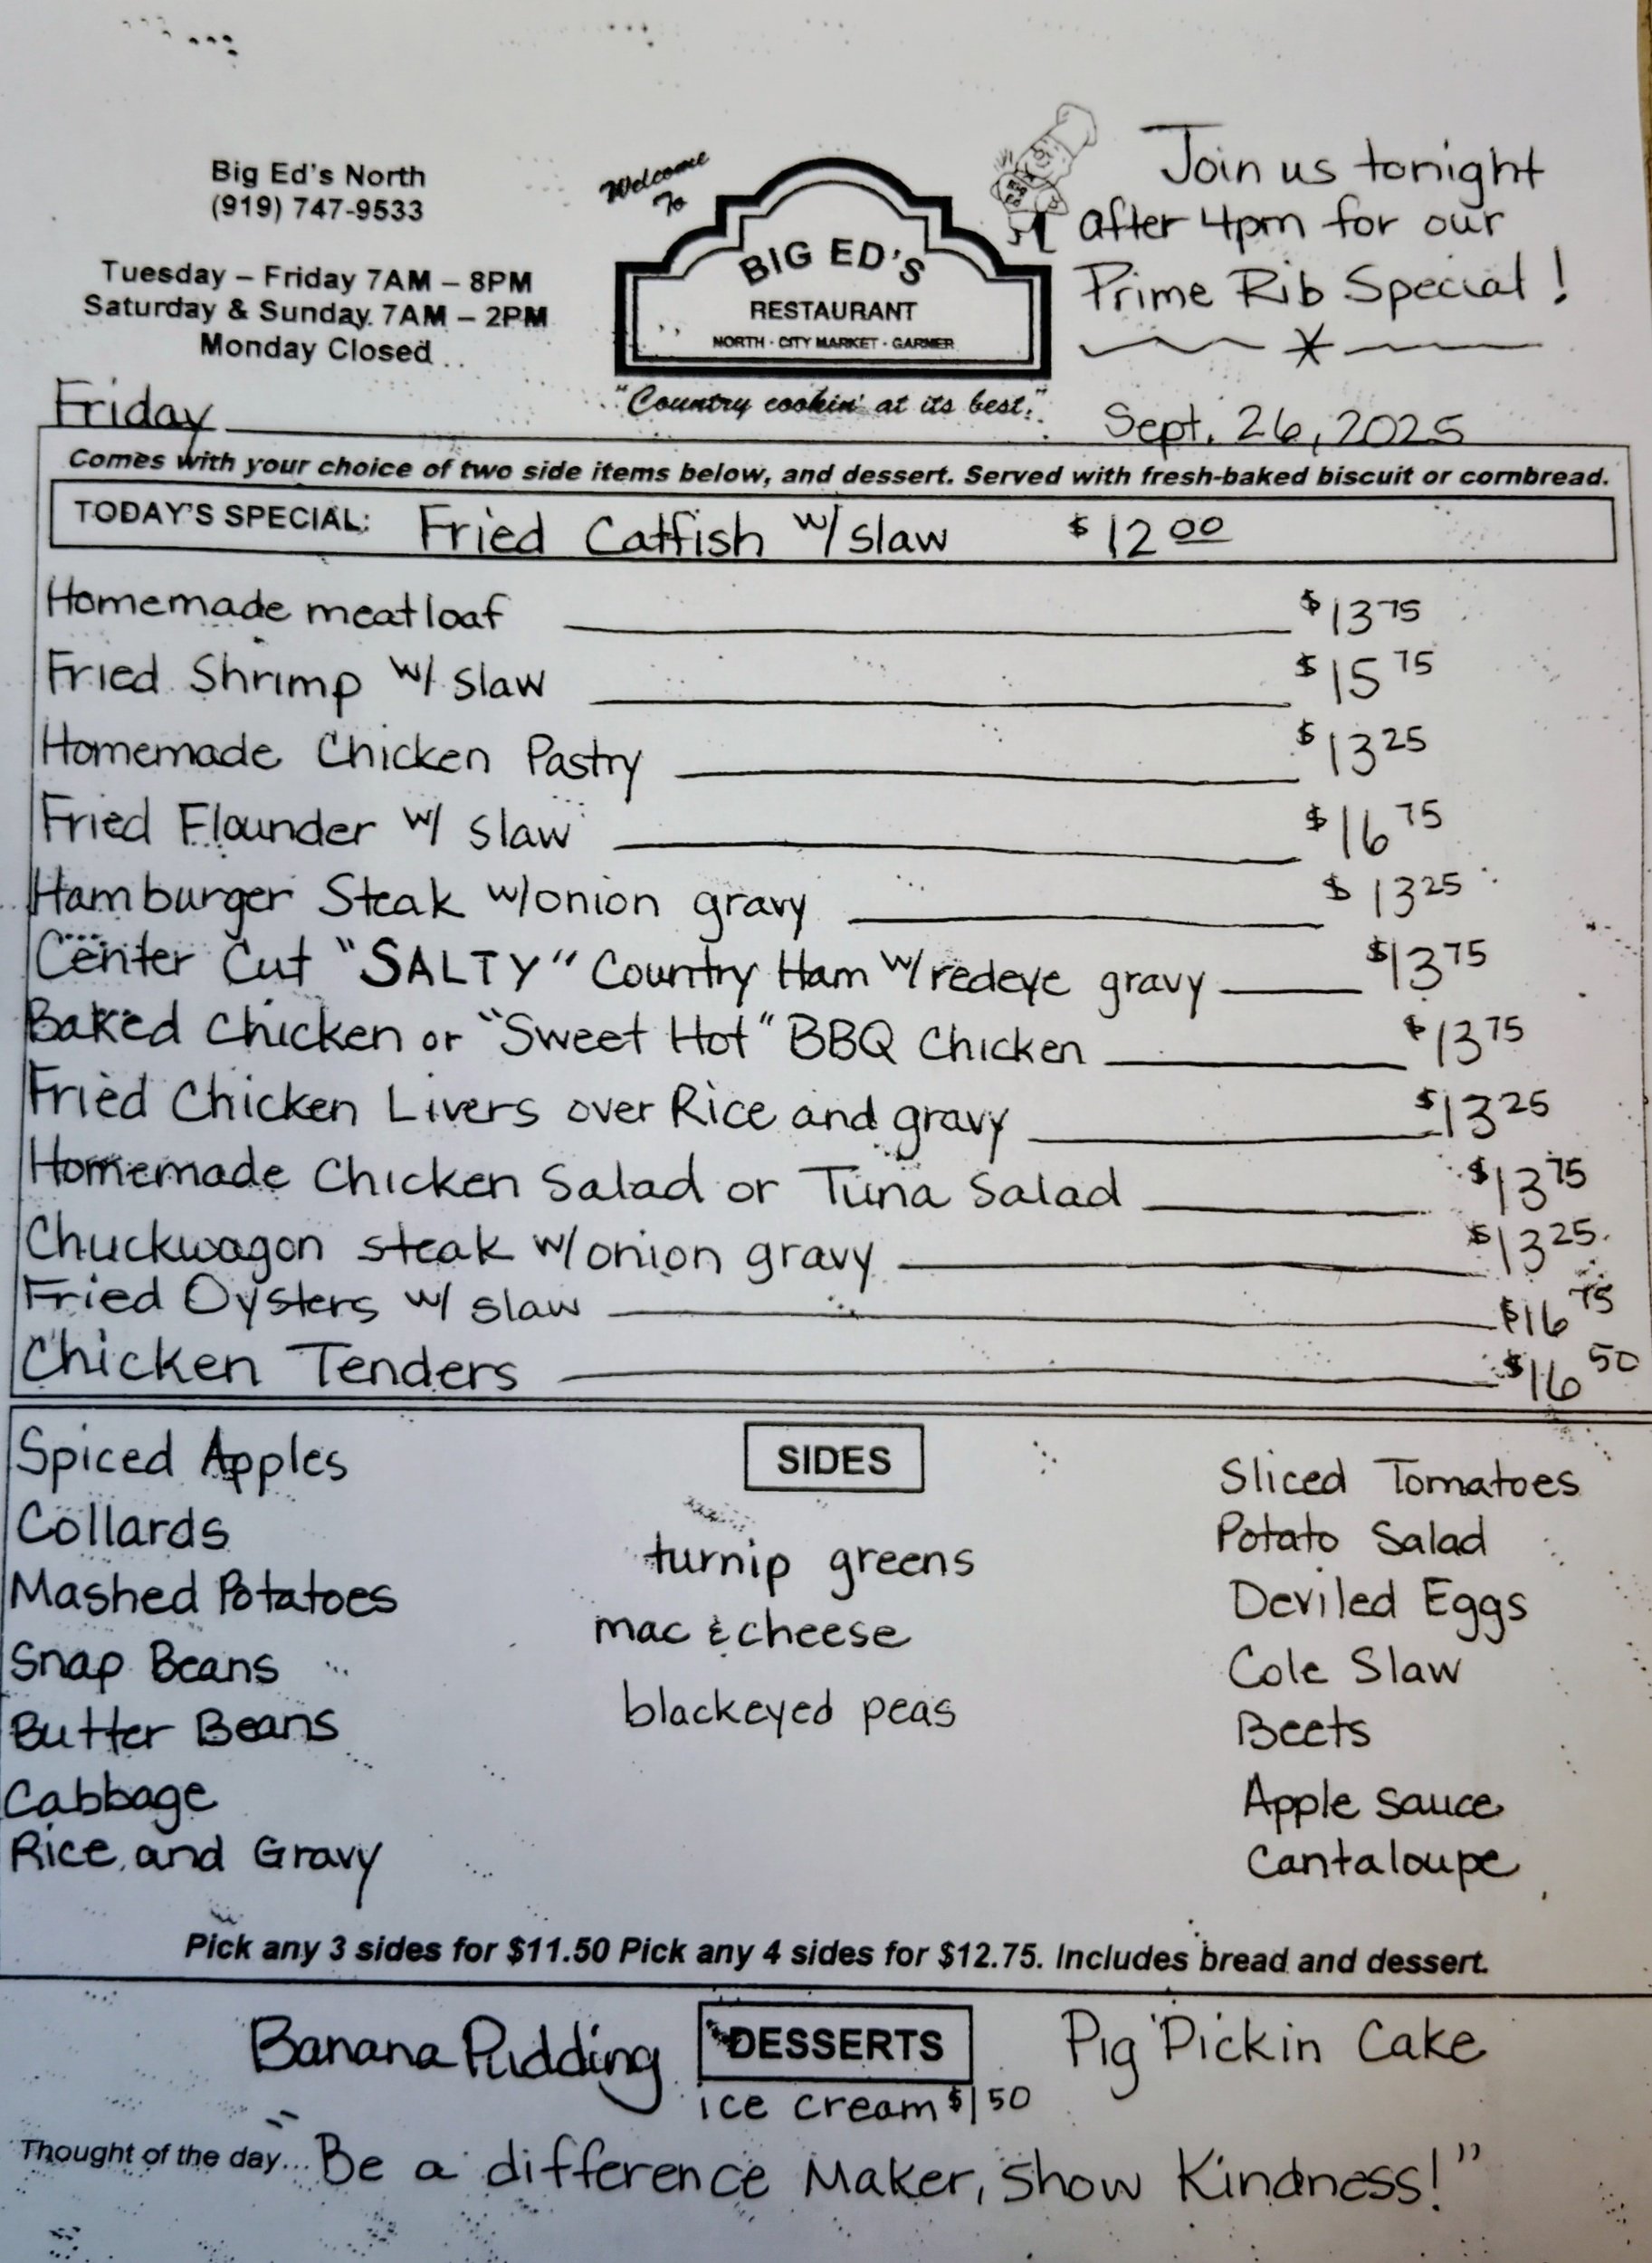 Big Ed's North
(919) 747-9533
Tuesday – Friday 7AM – 8PM
Saturday & Sunday. 7AM – 2PM
Monday Closed
Welcome
To
BIG ED'S
RESTAURANT
NORTH · CITY MARKET · GARNER
"Country cookin' at its best."
Join us tonight
after 4pm for our
Prime Rib Special!
Friday
Sept. 26, 2025
Comes with your choice of two side items below, and dessert. Served with fresh-baked biscuit or cornbread.
TODAY'S SPECIAL: Fried Catfish w/ slaw $12 00
Homemade meatloaf $13 75
Fried Shrimp w/ slaw $15 75
Homemade Chicken Pastry $13 25
Fried Flounder w/ slaw $16 75
Hamburger Steak w/onion gravy $13 25
Center Cut "SALTY" Country Ham w/redeye gravy $13 75
Baked Chicken or "Sweet Hot" BBQ Chicken $13 75
Fried Chicken Livers over Rice and gravy $13 25
Homemade Chicken Salad or Tuna Salad $13 75
Chuckwagon steak w/onion gravy $13 25
Fried Oysters w/ slaw $16 75
Chicken Tenders $16 50
SIDES
Spiced Apples
Collards
Mashed Potatoes
Snap Beans
Butter Beans
Cabbage
Rice and Gravy
turnip greens
mac & cheese
blackeyed peas
Sliced Tomatoes
Potato Salad
Deviled Eggs
Cole Slaw
Beets
Apple sauce
Cantaloupe
Pick any 3 sides for $11.50 Pick any 4 sides for $12.75. Includes bread and dessert.
DESSERTS
Banana Pudding
Pig Pickin Cake
ice cream $1 50
Thought of the day... "Be a difference Maker, Show Kindness!"